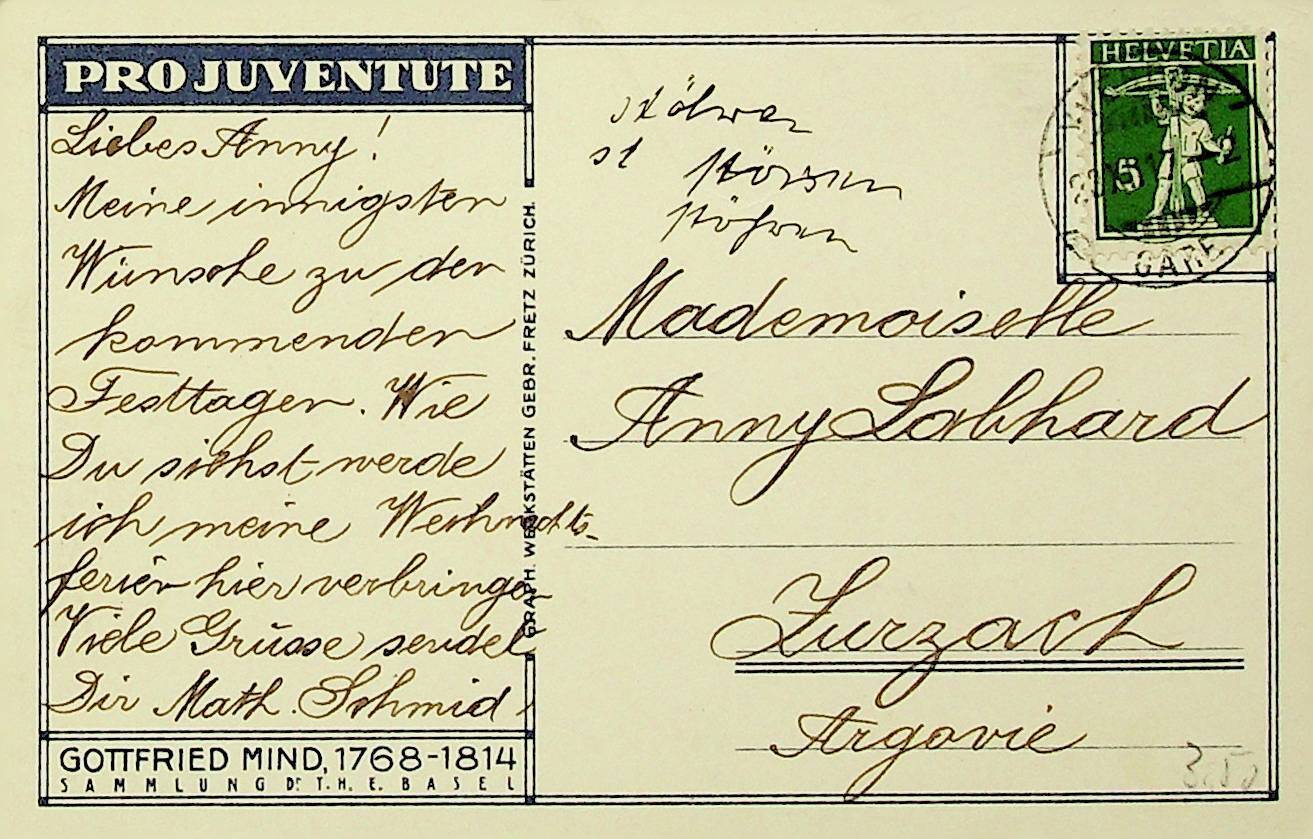 PRO JUVENTUTE
Liebes Anny!
Meine innigsten
Wünsche zu den
kommenden
Festtagen. Wie
Du siehst werde
ich meine Weihnachts-
ferien hier verbringen
Viele Grüsse sendet
Dir Math. Schmid
GOTTFRIED MIND, 1768-1814
SAMMLUNG DR. T.H.E. BASEL
GRAPH. WERKSTÄTTEN GEBR. FRETZ ZÜRICH.
HELVETIA
5
GARE
st
Mademoiselle
Anny Labhard
Zurzach
Argovie
3.50